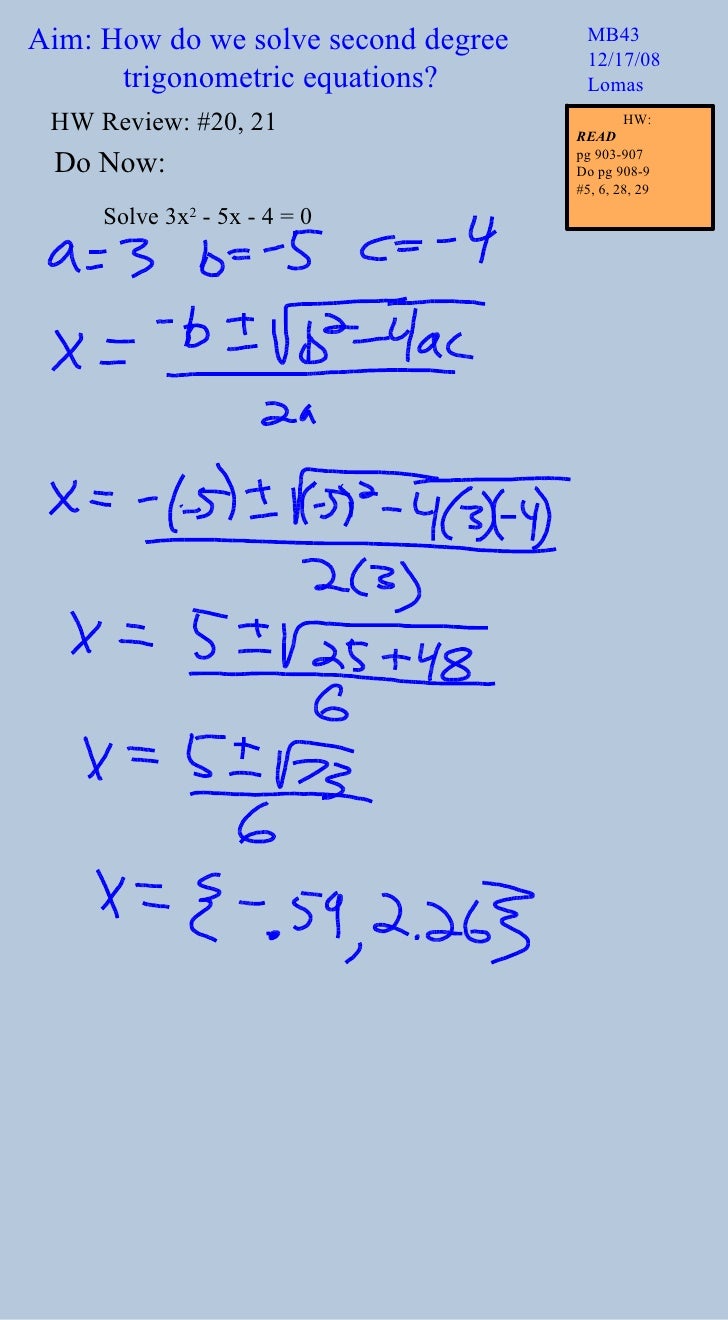 Aim: How do we solve second degree
trigonometric equations?
MB43
12/17/08
Lomas
HW Review: #20, 21
Do Now:
HW:
READ
pg 903-907
Do pg 908-9
#5, 6, 28, 29
Solve 3x² - 5x - 4 = 0
a=3 b=-5 c=-4
x = -b ± √b²-4ac
2a
x = -(-5) ± √(-5)² - 4(3)(-4)
2(3)
x = 5 ± √25+48
6
x = 5 ± √73
6
x = {-.59, 2.26}